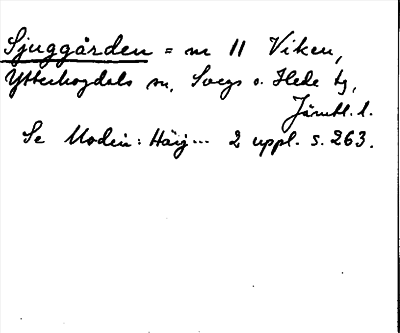 Sjuggården = nr 11 Viken,
Ytterhogdals sn, Svegs o. Hede tg,
Jämtl. l.
Se Modin: Härj... 2 uppl. s. 263.